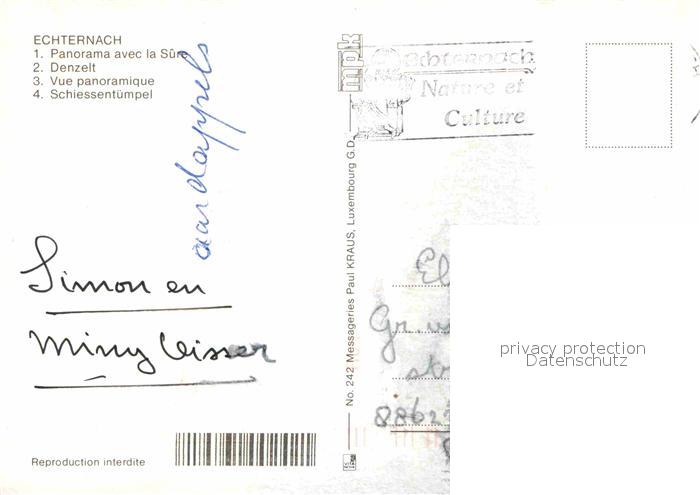 ECHTERNACH
1. Panorama avec la Sûre
2. Denzelt
3. Vue panoramique
4. Schiessentümpel
aardappels
Simon en
Miny Visser
Reproduction interdite
mpk
No. 242 Messageries Paul KRAUS, Luxembourg G.D.
Echternach
Nature et
Culture
El
Gr.
str
8862
privacy protection
Datenschutz